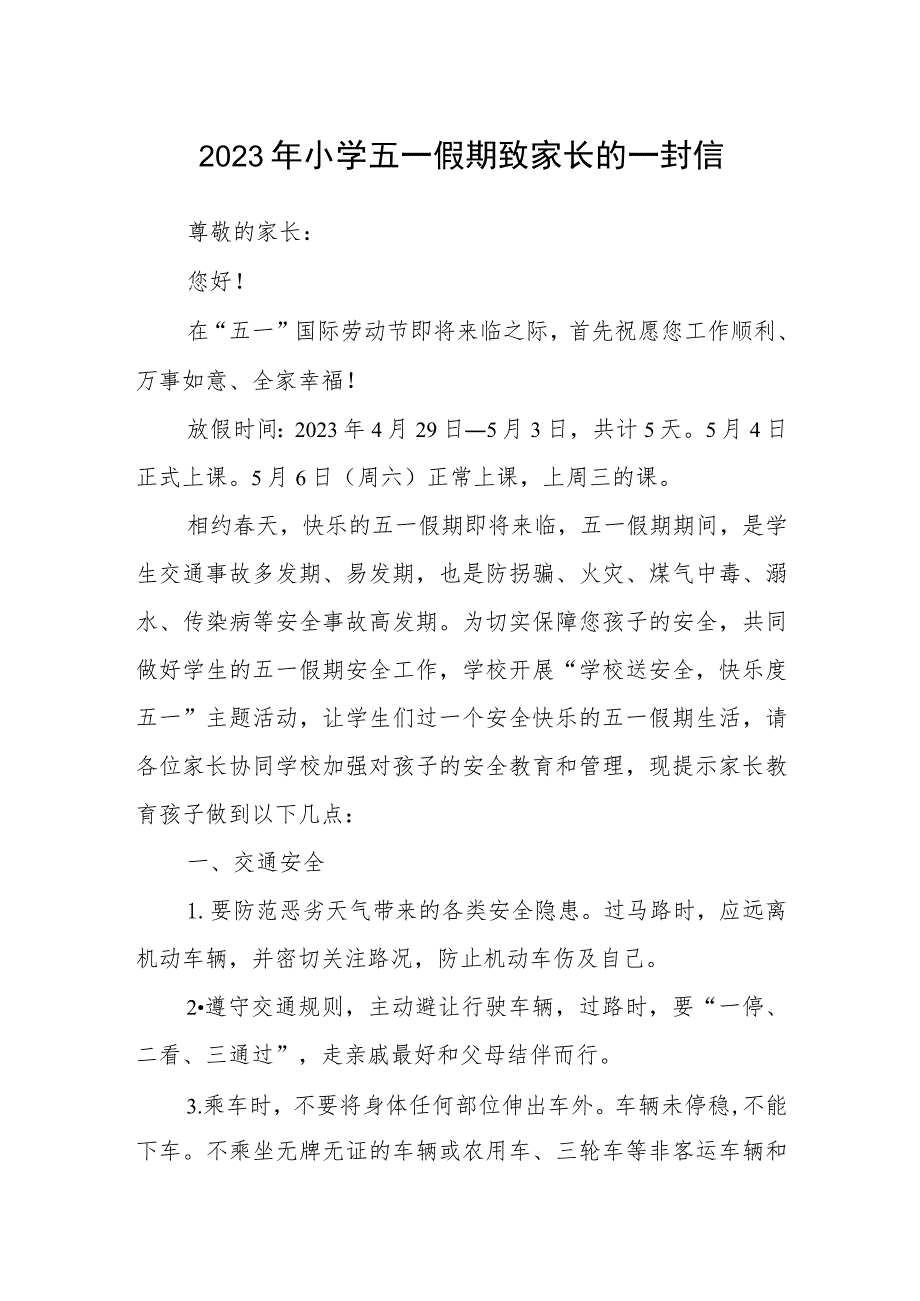 2023年小学五一假期致家长的一封信
尊敬的家长：
您好！
在“五一”国际劳动节即将来临之际，首先祝愿您工作顺利、
万事如意、全家幸福！
放假时间：2023年4月29日—5月3日，共计5天。5月4日
正式上课。5月6日（周六）正常上课，上周三的课。
相约春天，快乐的五一假期即将来临，五一假期期间，是学
生交通事故多发期、易发期，也是防拐骗、火灾、煤气中毒、溺
水、传染病等安全事故高发期。为切实保障您孩子的安全，共同
做好学生的五一假期安全工作，学校开展“学校送安全，快乐度
五一”主题活动，让学生们过一个安全快乐的五一假期生活，请
各位家长协同学校加强对孩子的安全教育和管理，现提示家长教
育孩子做到以下几点：
一、交通安全
1.要防范恶劣天气带来的各类安全隐患。过马路时，应远离
机动车辆，并密切关注路况，防止机动车伤及自己。
2•遵守交通规则，主动避让行驶车辆，过路时，要“一停、
二看、三通过”，走亲戚最好和父母结伴而行。
3.乘车时，不要将身体任何部位伸出车外。车辆未停稳,不能
下车。不乘坐无牌无证的车辆或农用车、三轮车等非客运车辆和